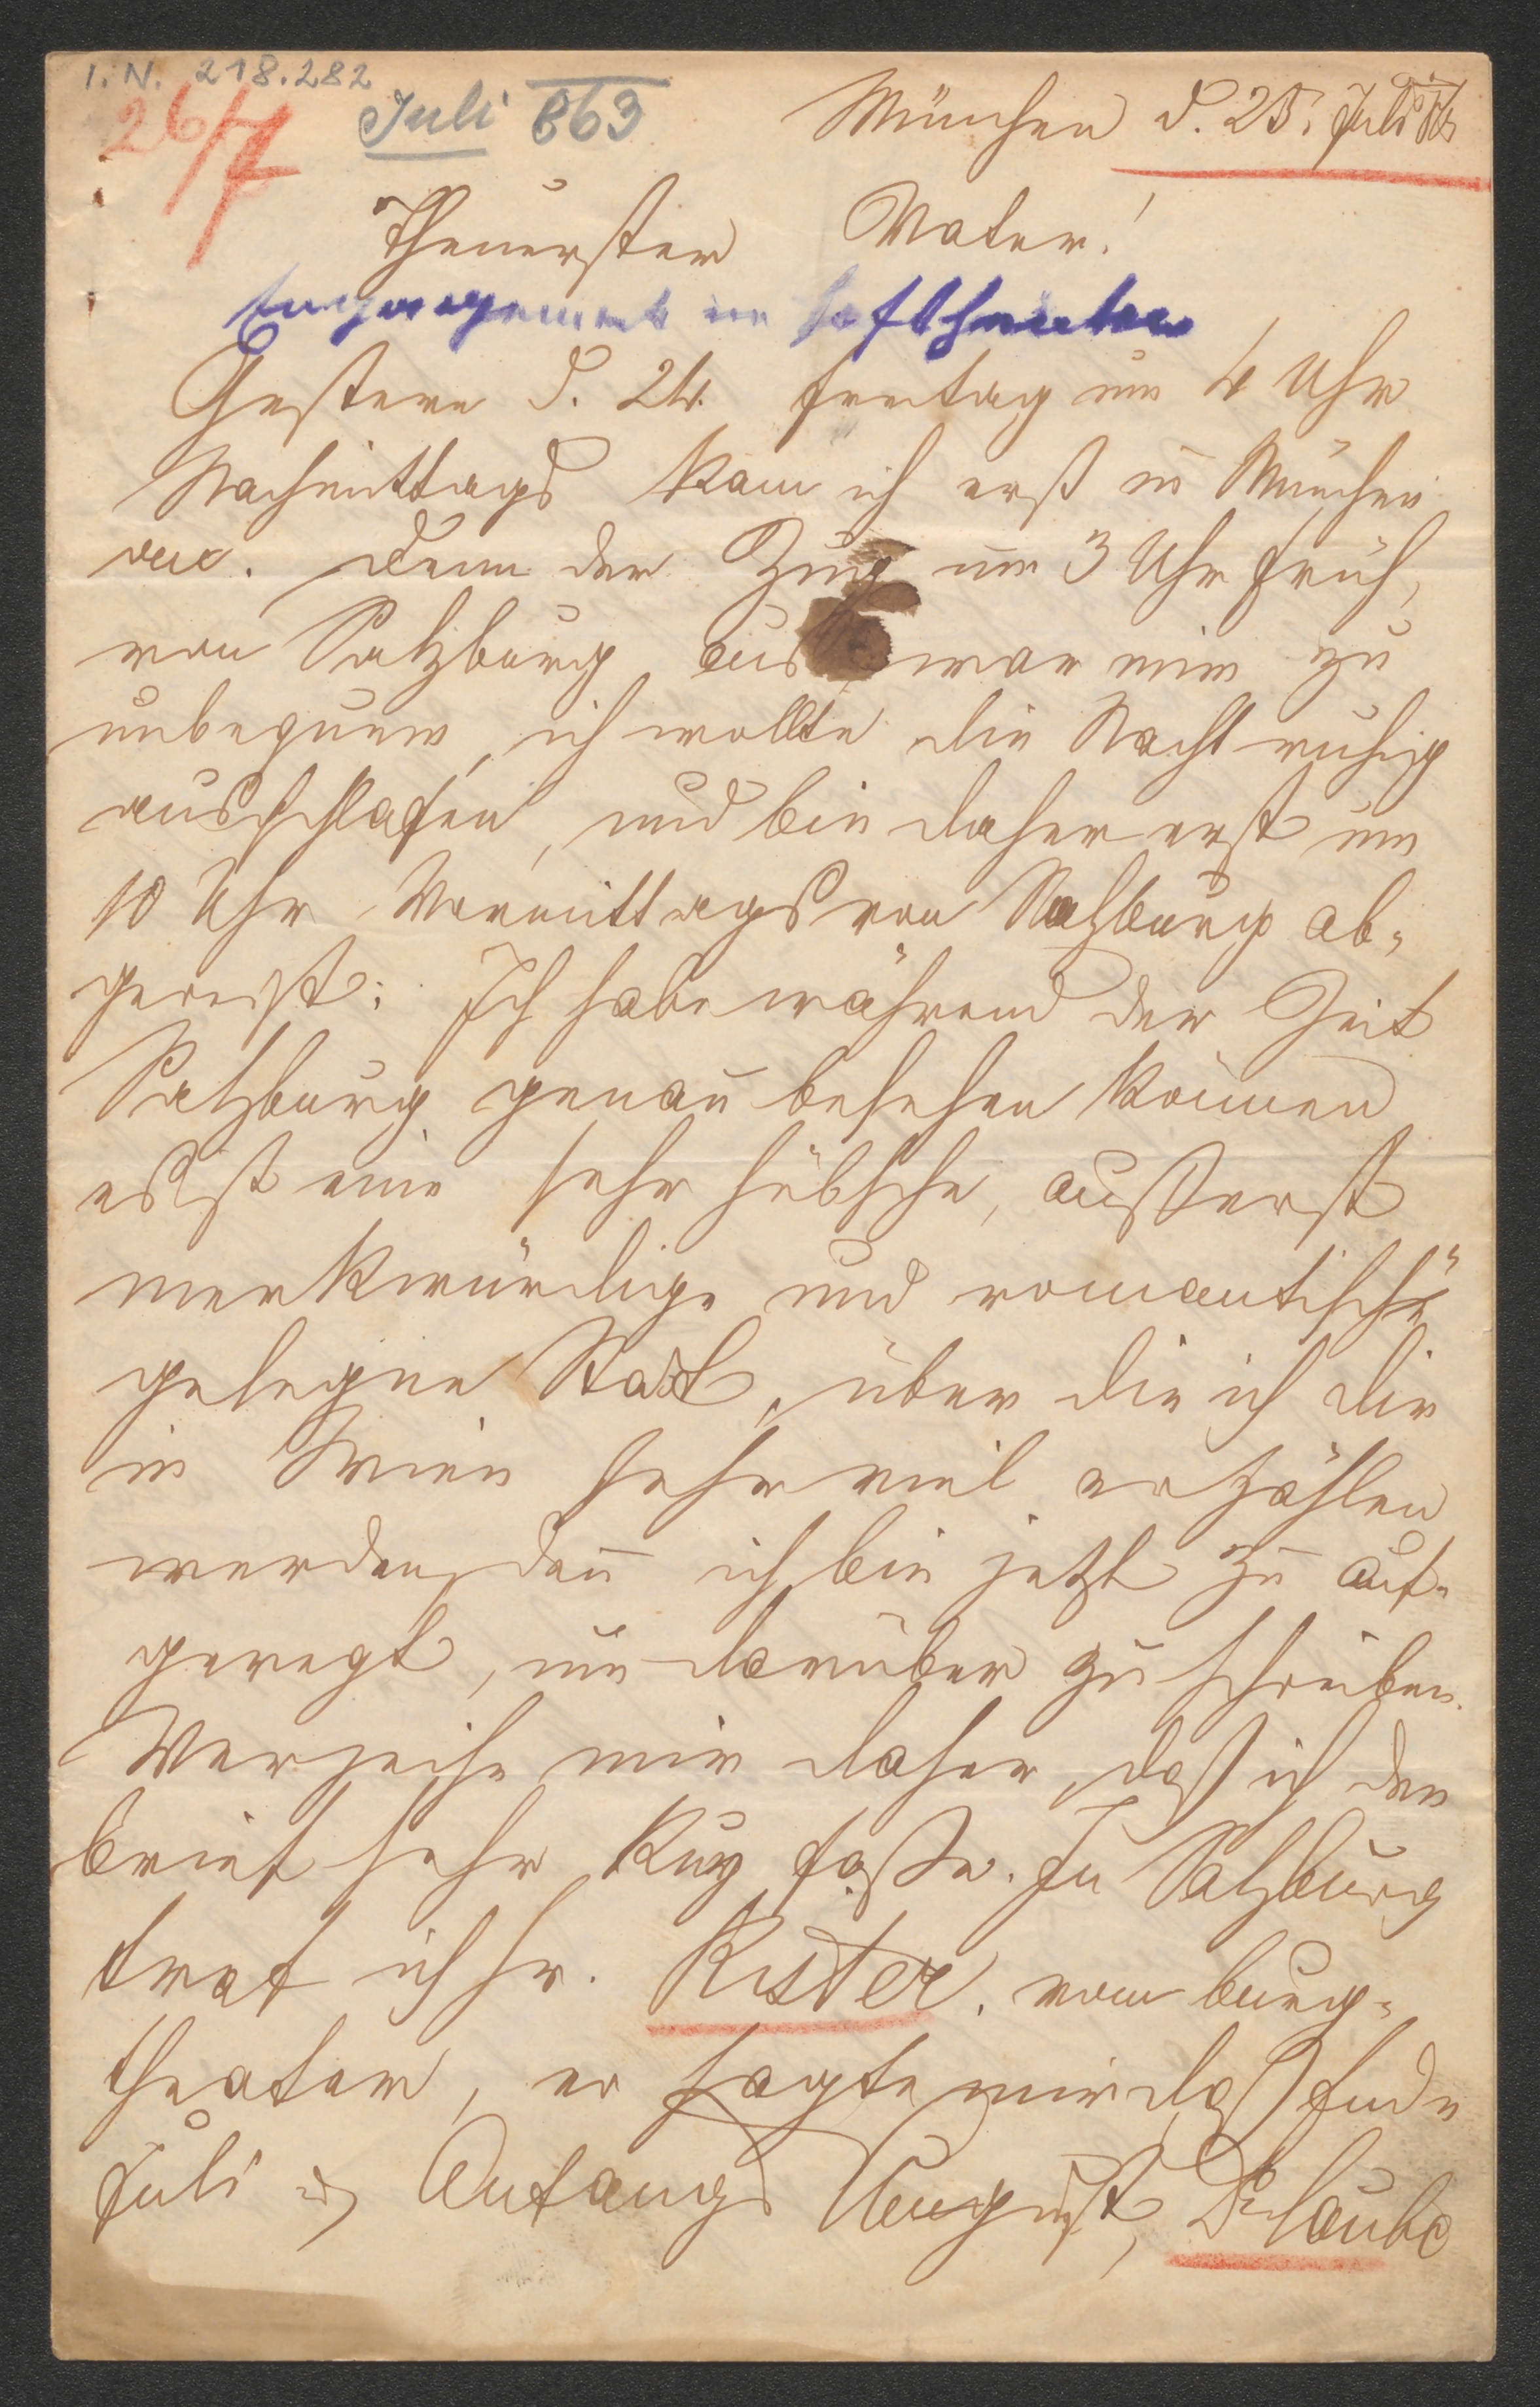 I. N. 218.282
26/7
Juli 863
München d. 25. Juli
Theuerster Vater!
Engagement im Hoftheater
Gestern d. 24. Freitag um 4 Uhr
Nachmittags kam ich erst in München
an. Denn der Zug um 3 Uhr früh,
von Salzburg aus war mir zu
unbequem, ich wollte die Nacht ruhig
ausschlafen, und bin daher erst um
10 Uhr Vormittags von Salzburg ab-
gereist. Ich habe während der Zeit
Salzburg genau besehen können
es ist eine sehr hübsche, äußerst
merkwürdige und romantisch
gelegne Stadt, über die ich dir
in Wien sehr viel erzählen
werden, den̄ ich bin jetzt zu auf-
geregt, um darüber zu schreiben.
Verzeihe mir daher, daß ich den
Brief sehr kurz faße. In Salzburg
traf ich Hr. Kister. vom Burg-
theater, er sagte mir daß Ende
Juli & Anfangs August, Dr Laube